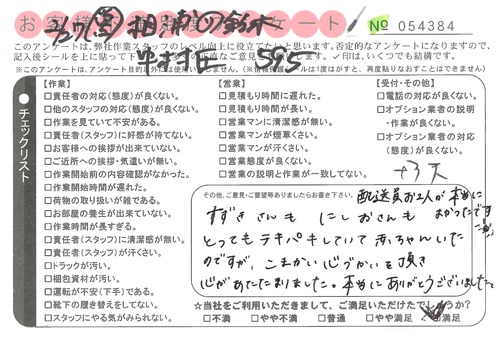 お客様 ート
No 054384
このアンケートは、弊社作業スタッフのレベル向上に役立てたいと思います。否定的なアンケートになりますので、
※このアンケートは、アンケート目的以外には使用いたしません。
チェックリスト
【作業】
□責任者の対応(態度)が良くない。
□他のスタッフの対応(態度)が良くない。
□作業を見ていて不安がある。
□責任者(スタッフ)に好感が持てない。
□お客様への挨拶が出来ていない。
□ご近所への挨拶・気遣いが無い。
□作業開始前の内容確認がなかった。
□作業開始時間が遅れた。
□荷物の取り扱いが雑である。
□お部屋の養生が出来ていない。
□作業時間が長すぎる。
□責任者(スタッフ)に清潔感が無い。
□責任者(スタッフ)が汗くさい。
□トラックが汚い。
□梱包資材が汚い。
□運転が不安(下手)である。
□靴下の履き替えをしてない。
□スタッフにやる気がみられない。
【営業】
□見積もり時間に遅れた。
□見積もり時間が長い。
□営業マンに清潔感が無い。
□営業マンが煙草くさい。
□営業マンが汗くさい。
□営業態度が良くない。
□営業の説明と作業が一致してない。
【受付・その他】
□電話の対応が良くない。
□オプション業者の説明
・作業が良くない。
□オプション業者の対応
(態度)が良くない。
その他、ご意見・ご要望等ありましたらお書き下さい。
配送員お2人が本当に
よかったです
すずきさんも にしおさんも
とってもテキパキしていて赤ちゃんいた
のですが、こまかい心づかいを頂き
心があたたまりました。本当にありがとうございました
☆当社をご利用いただきまして、ご満足いただけたでしょうか?
□不満 □やや不満 □普通 □やや満足 満足